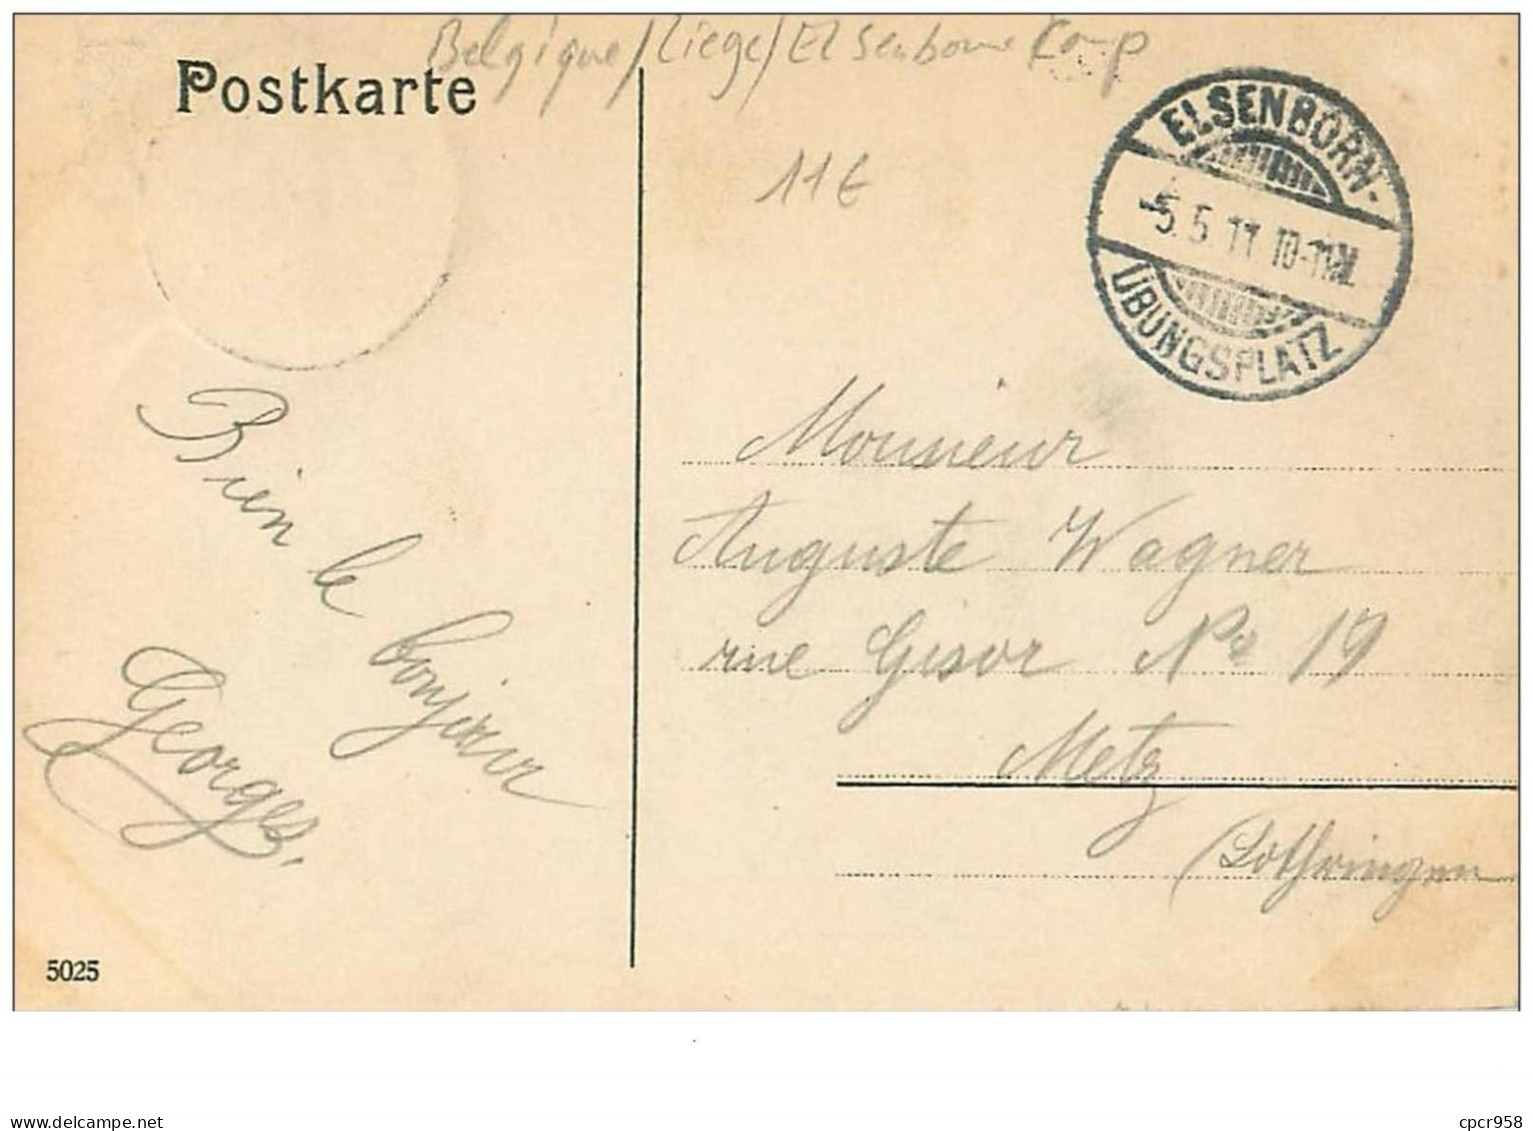 Belgique/Liege/Elsenborne Camp
Postkarte
11€
ELSENBORN-
5.5.11 10-11N.
ÜBUNGSPLATZ
Bien le bonjour
Georges.
Monsieur
Auguste Wagner
rue Gisor No 19
Metz
(Lothringen
5025
cpcr958